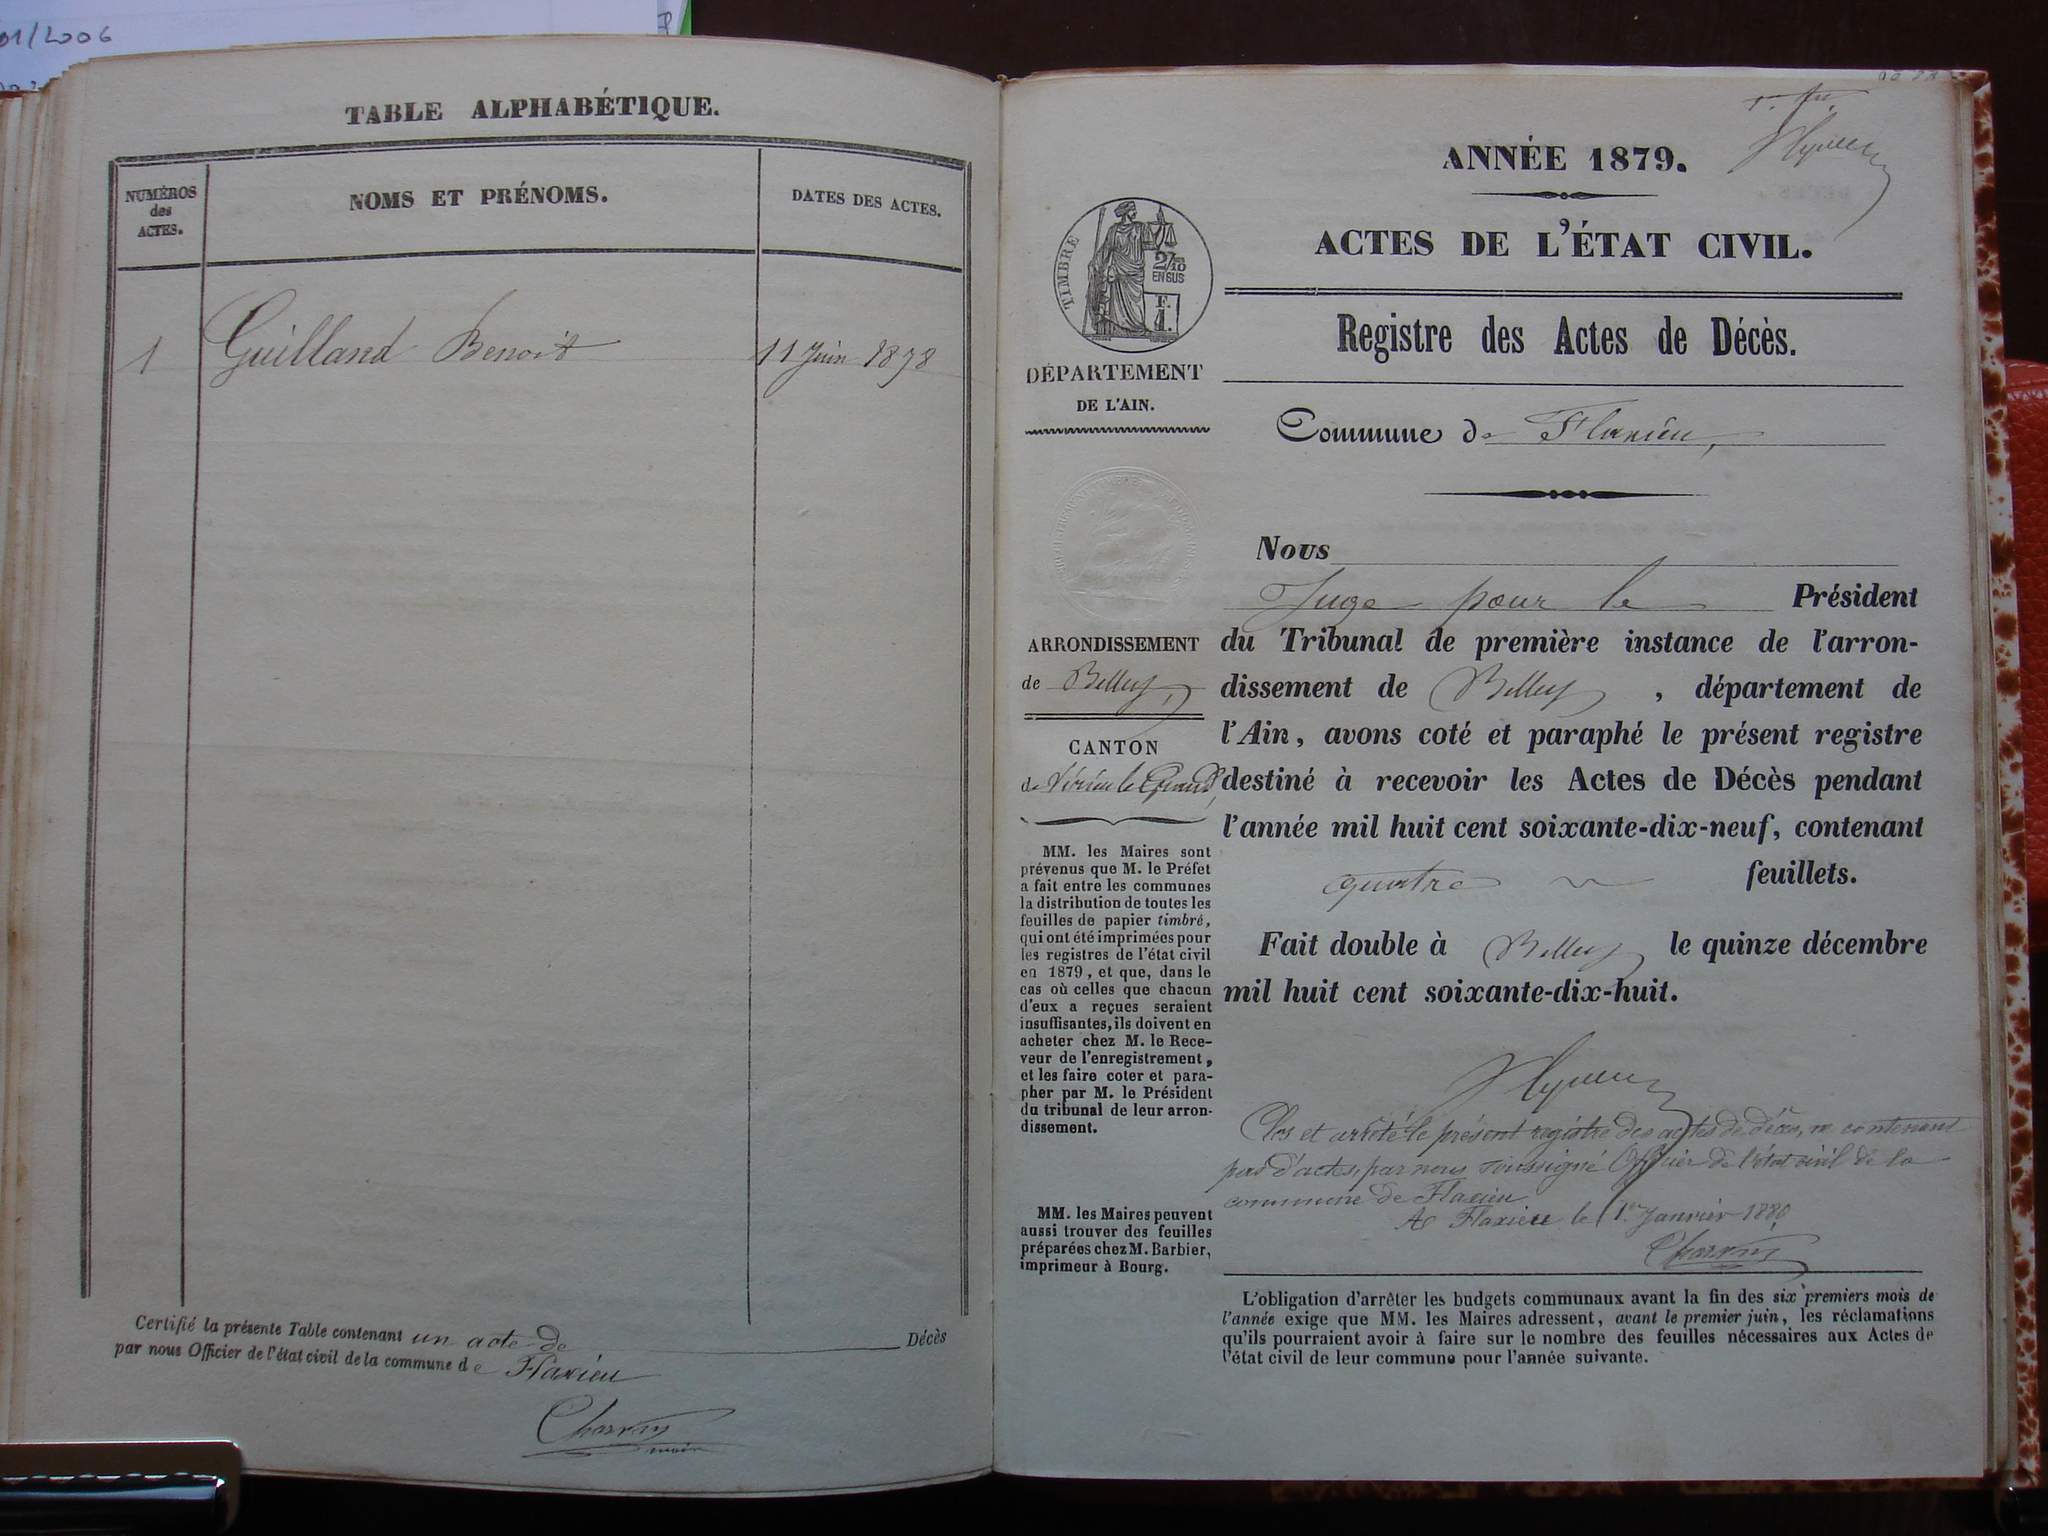 01/2006
TABLE ALPHABÉTIQUE.
NUMÉROS
des
ACTES.
NOMS ET PRÉNOMS.
DATES DES ACTES.
1 Guilland Benoit 11 Juin 1878
Certifié la présente Table contenant un acte de Décès
par nous Officier de l'état civil de la commune de Flaxieu
Charvin
maire
ANNÉE 1879.
ACTES DE L'ÉTAT CIVIL.
TIMBRE
2/10
EN SUS
F.
1.
Registre des Actes de Décès.
DÉPARTEMENT
DE L'AIN.
Commune de Flaxieu,
Nous
Juge pour le Président
du Tribunal de première instance de l'arron-
dissement de Belley, département de
l'Ain, avons coté et paraphé le présent registre
destiné à recevoir les Actes de Décès pendant
l'année mil huit cent soixante-dix-neuf, contenant
quatre feuillets.
Fait double à Belley le quinze décembre
mil huit cent soixante-dix-huit.
ARRONDISSEMENT
de Belley,
CANTON
de Virieu le Grand,
MM. les Maires sont
prévenus que M. le Préfet
a fait entre les communes
la distribution de toutes les
feuilles de papier timbré,
qui ont été imprimées pour
les registres de l'état civil
en 1879, et que, dans le
cas où celles que chacun
d'eux a reçues seraient
insuffisantes, ils doivent en
acheter chez M. le Rece-
veur de l'enregistrement,
et les faire coter et para-
pher par M. le Président
du tribunal de leur arron-
dissement.
MM. les Maires peuvent
aussi trouver des feuilles
préparées chez M. Barbier,
imprimeur à Bourg.
Clos et arrêté le présent registre des actes de décès, ne contenant
pas d'actes, par nous soussigné Officier de l'état civil de la
commune de Flaxieu
A Flaxieu le 1er Janvier 1880
Charvin
L'obligation d'arrêter les budgets communaux avant la fin des six premiers mois de
l'année exige que MM. les Maires adressent, avant le premier juin, les réclamations
qu'ils pourraient avoir à faire sur le nombre des feuilles nécessaires aux Actes de
l'état civil de leur commune pour l'année suivante.